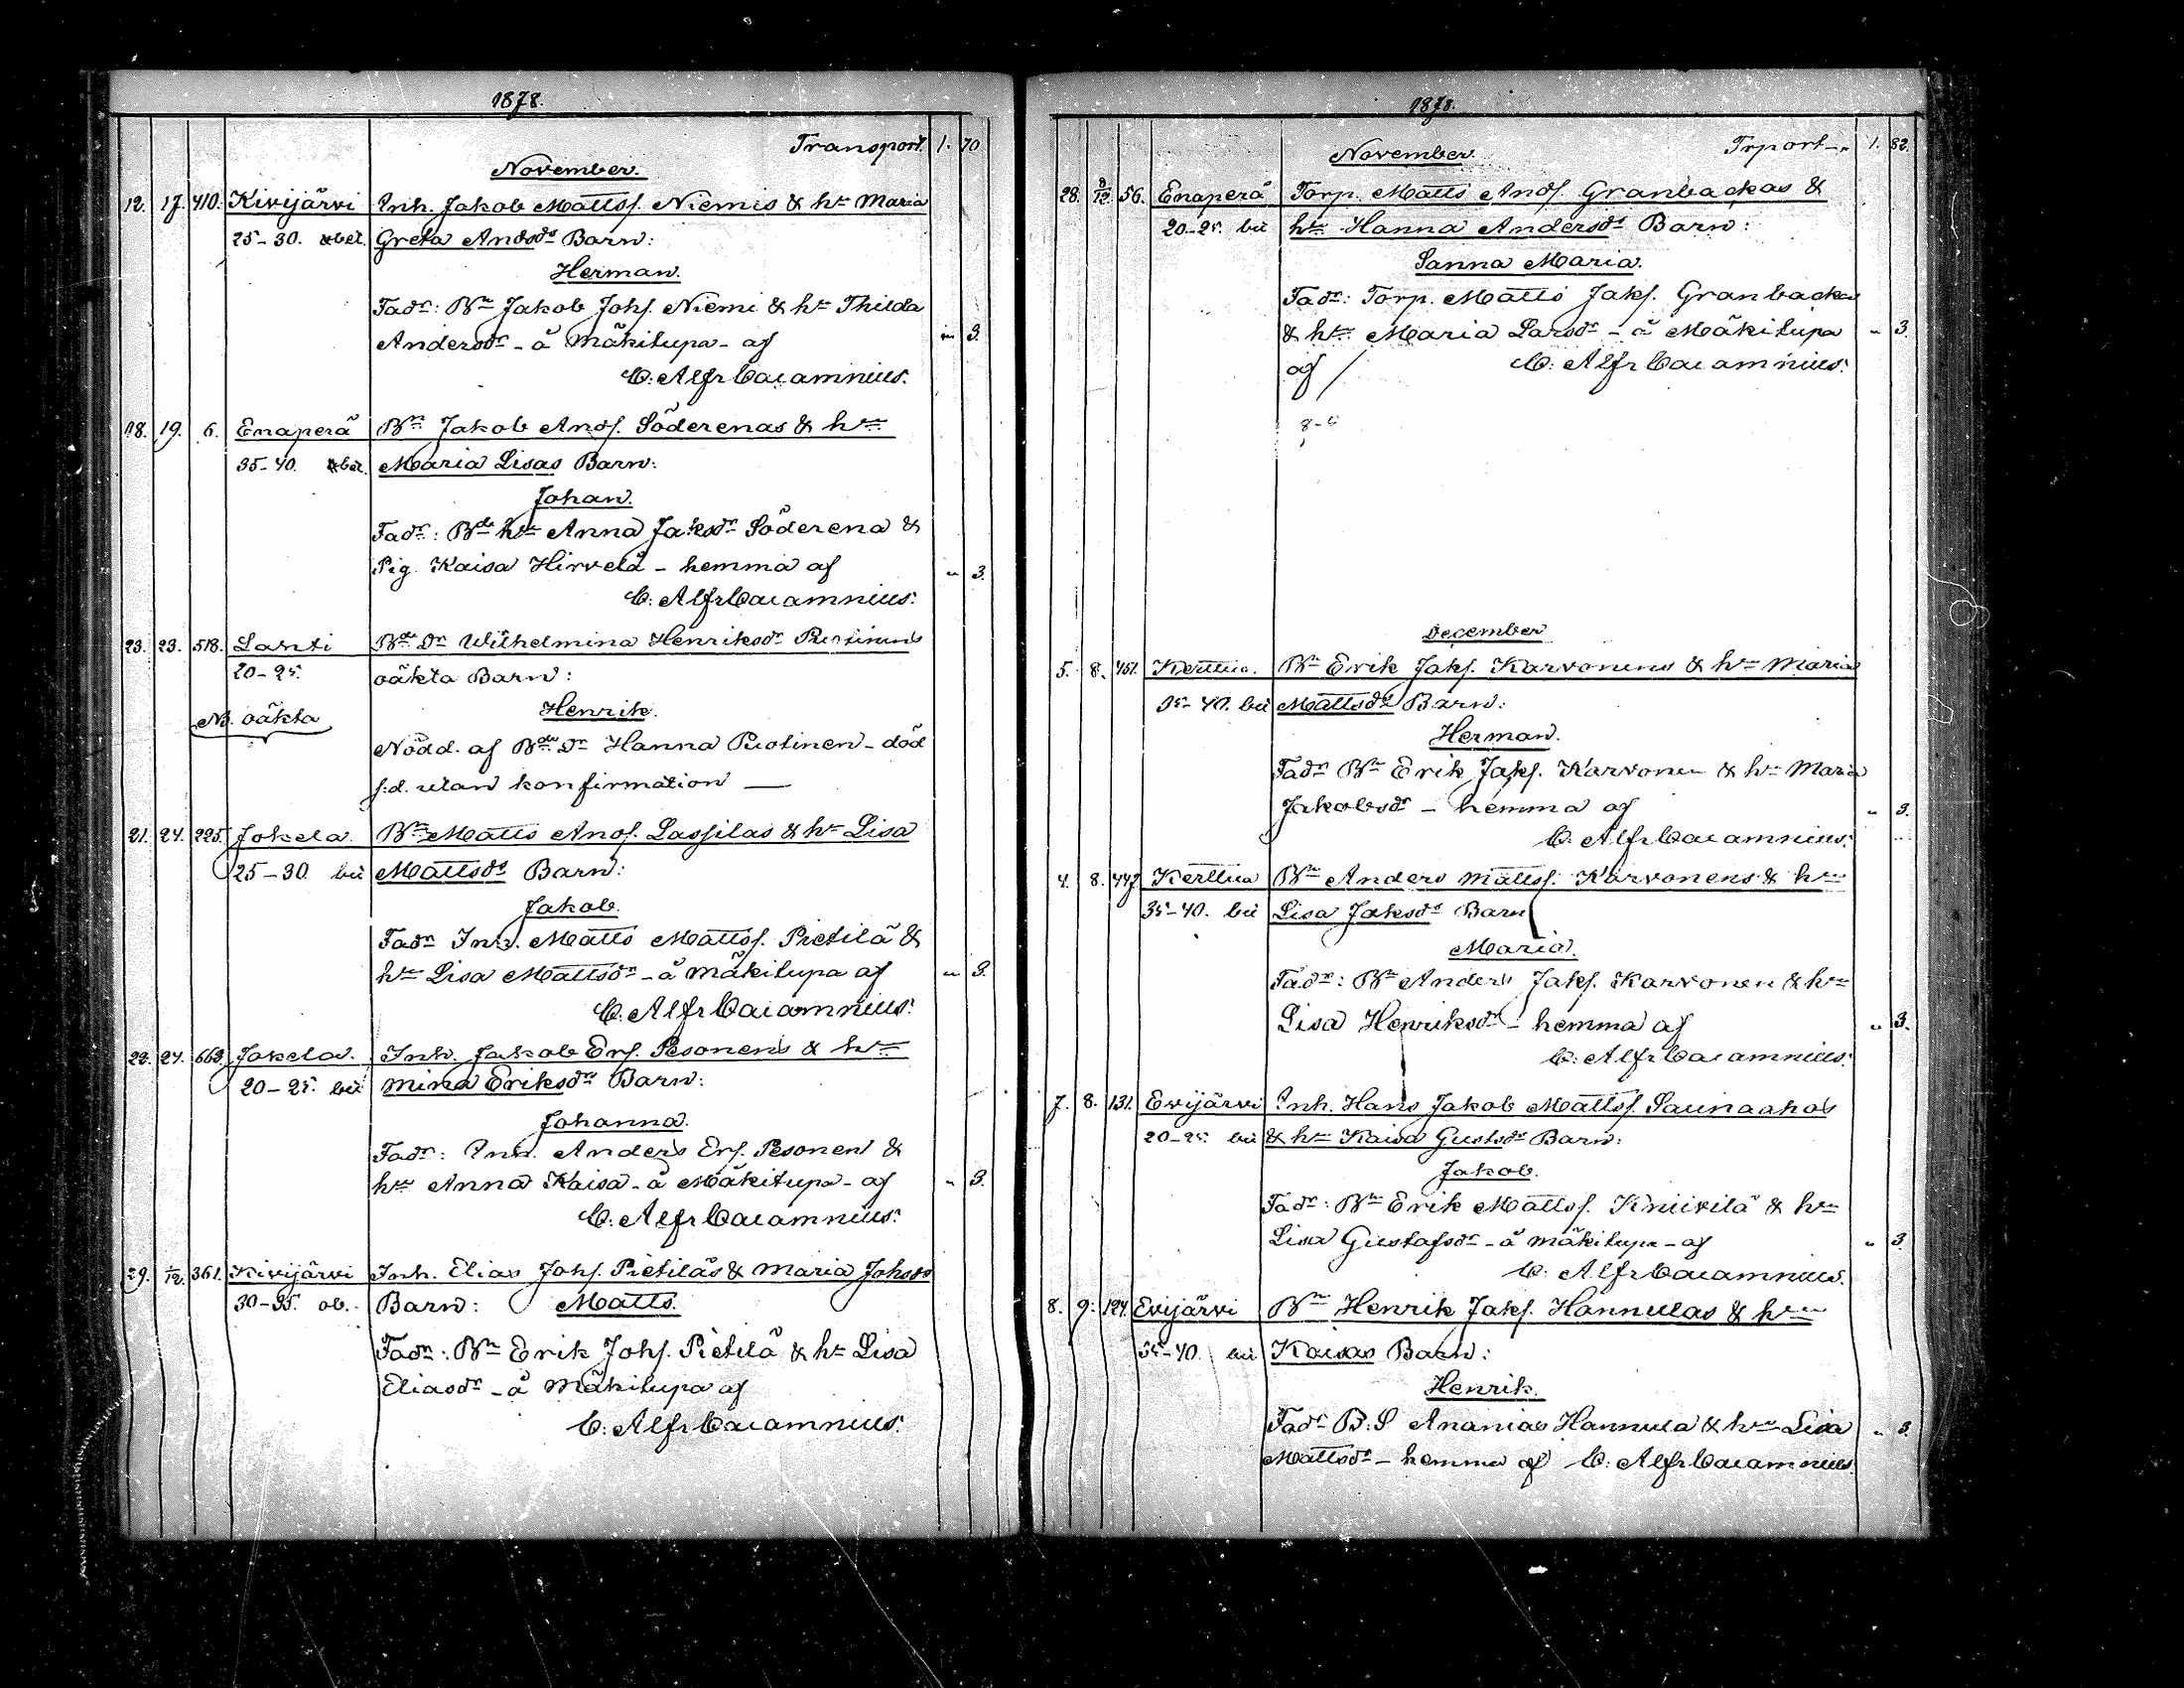 1878.
Transport. 1. 70
November.
12. 17. 410. Kivijärvi Inh. Jakob Mattsf. Niemis & hn Maria
25-30. bet. Greta Andsdrs Barn:
Herman.
Fadr: Bn Jakob Johf. Niemi & hn Thilda
Andersdr - å Mäkitupa - af " 3.
C: Alfr Cajamnius.
18. 19. 6. Enaperä Bn Jakob Andf. Söderenas & hns
35-40. bet. Maria Lisas Barn:
Johan.
Fadr: Bde hn Anna Jaksdr Söderena &
Pig. Kaisa Hirvelä - hemma af " 3.
C: Alfr Cajamnius.
23. 23. 518. Lanti Bde Dr Wilhelmina Henriksdr
20-25. oäkta Barn:
Nb. oäkta Henrik.
Nödd. af Bde Dr Hanna - död
s.d. utan konfirmation —
21. 24. 225. Jokela Bn Matts Andf. Lassilas & hn Lisa
25-30 Mattsdrs Barn:
Jakob.
Fadr Inh. Matts Mattsf. Pietilä &
hn Lisa Mattsdr - å Mäkitupa af " 3.
C: Alfr Cajamnius.
22. 24. 663. Jokela. Inh. Jakob Erf. Pesonens & hns
20-25. Mina Eriksdrs Barn:
Johanna.
Fadr: Inh. Anders Erf. Pesonen &
hn Anna Kaisa - å Mäkitupa - af " 3.
C: Alfr Cajamnius.
29. 1/12. 361. Kivijärvi Inh. Elias Johf. Pietiläs & Maria Johsdrs
30-35. ob. Barn: Matts.
Fadr: Bn Erik Johf. Pietilä & hn Lisa
Eliasdr - å Mäkitupa af
C: Alfr Cajamnius.
1878.
November. Trport 1. 82.
28. 2/12. 56. Enaperä Torp. Matts Andf. Granbackas &
20-25. hns Hanna Andersdrs Barn:
Sanna Maria.
Fadr: Torp. Matts Jakf. Granbacka
& hn Maria Larsdr - å Mäkitupa " 3.
af C: Alfr Cajamnius.
December
5. 8. 451. Kerttua. Bn Erik Jakf. Karvonens & hn Maria
35-40. Mattsdrs Barn:
Herman.
Fadr Bn Erik Jakf. Karvonen & hn Maria
Jakobsdr - hemma af " 3.
C: Alfr Cajamnius.
4. 8. 447. Kerttua Bn Anders Mattsf. Karvonens & hns
35-40. Lisa Jaksdrs Barn
Maria.
Fadr: Bn Anders Jakf. Karvonen & hn
Lisa Henriksdr - hemma af " 3.
C: Alfr Cajamnius.
7. 8. 131. Evijärvi Inh. Hans Jakob Mattsf. Saunaahos
20-25. & hn Kaisa Gustsdrs Barn:
Jakob.
Fadr: Bn Erik Mattsf. Kniivilä & hn
Lisa Gustafsdr - å Mäkitupa - af " 3.
C: Alfr Cajamnius.
8. 9. 127. Evijärvi Bn Henrik Jakf. Hannulas & hns
35-40. Kaisas Barn:
Henrik.
Fadr B:S Ananias Hannula & hn Lisa " 3.
Mattsdr - hemma af C: Alfr Cajamnius.